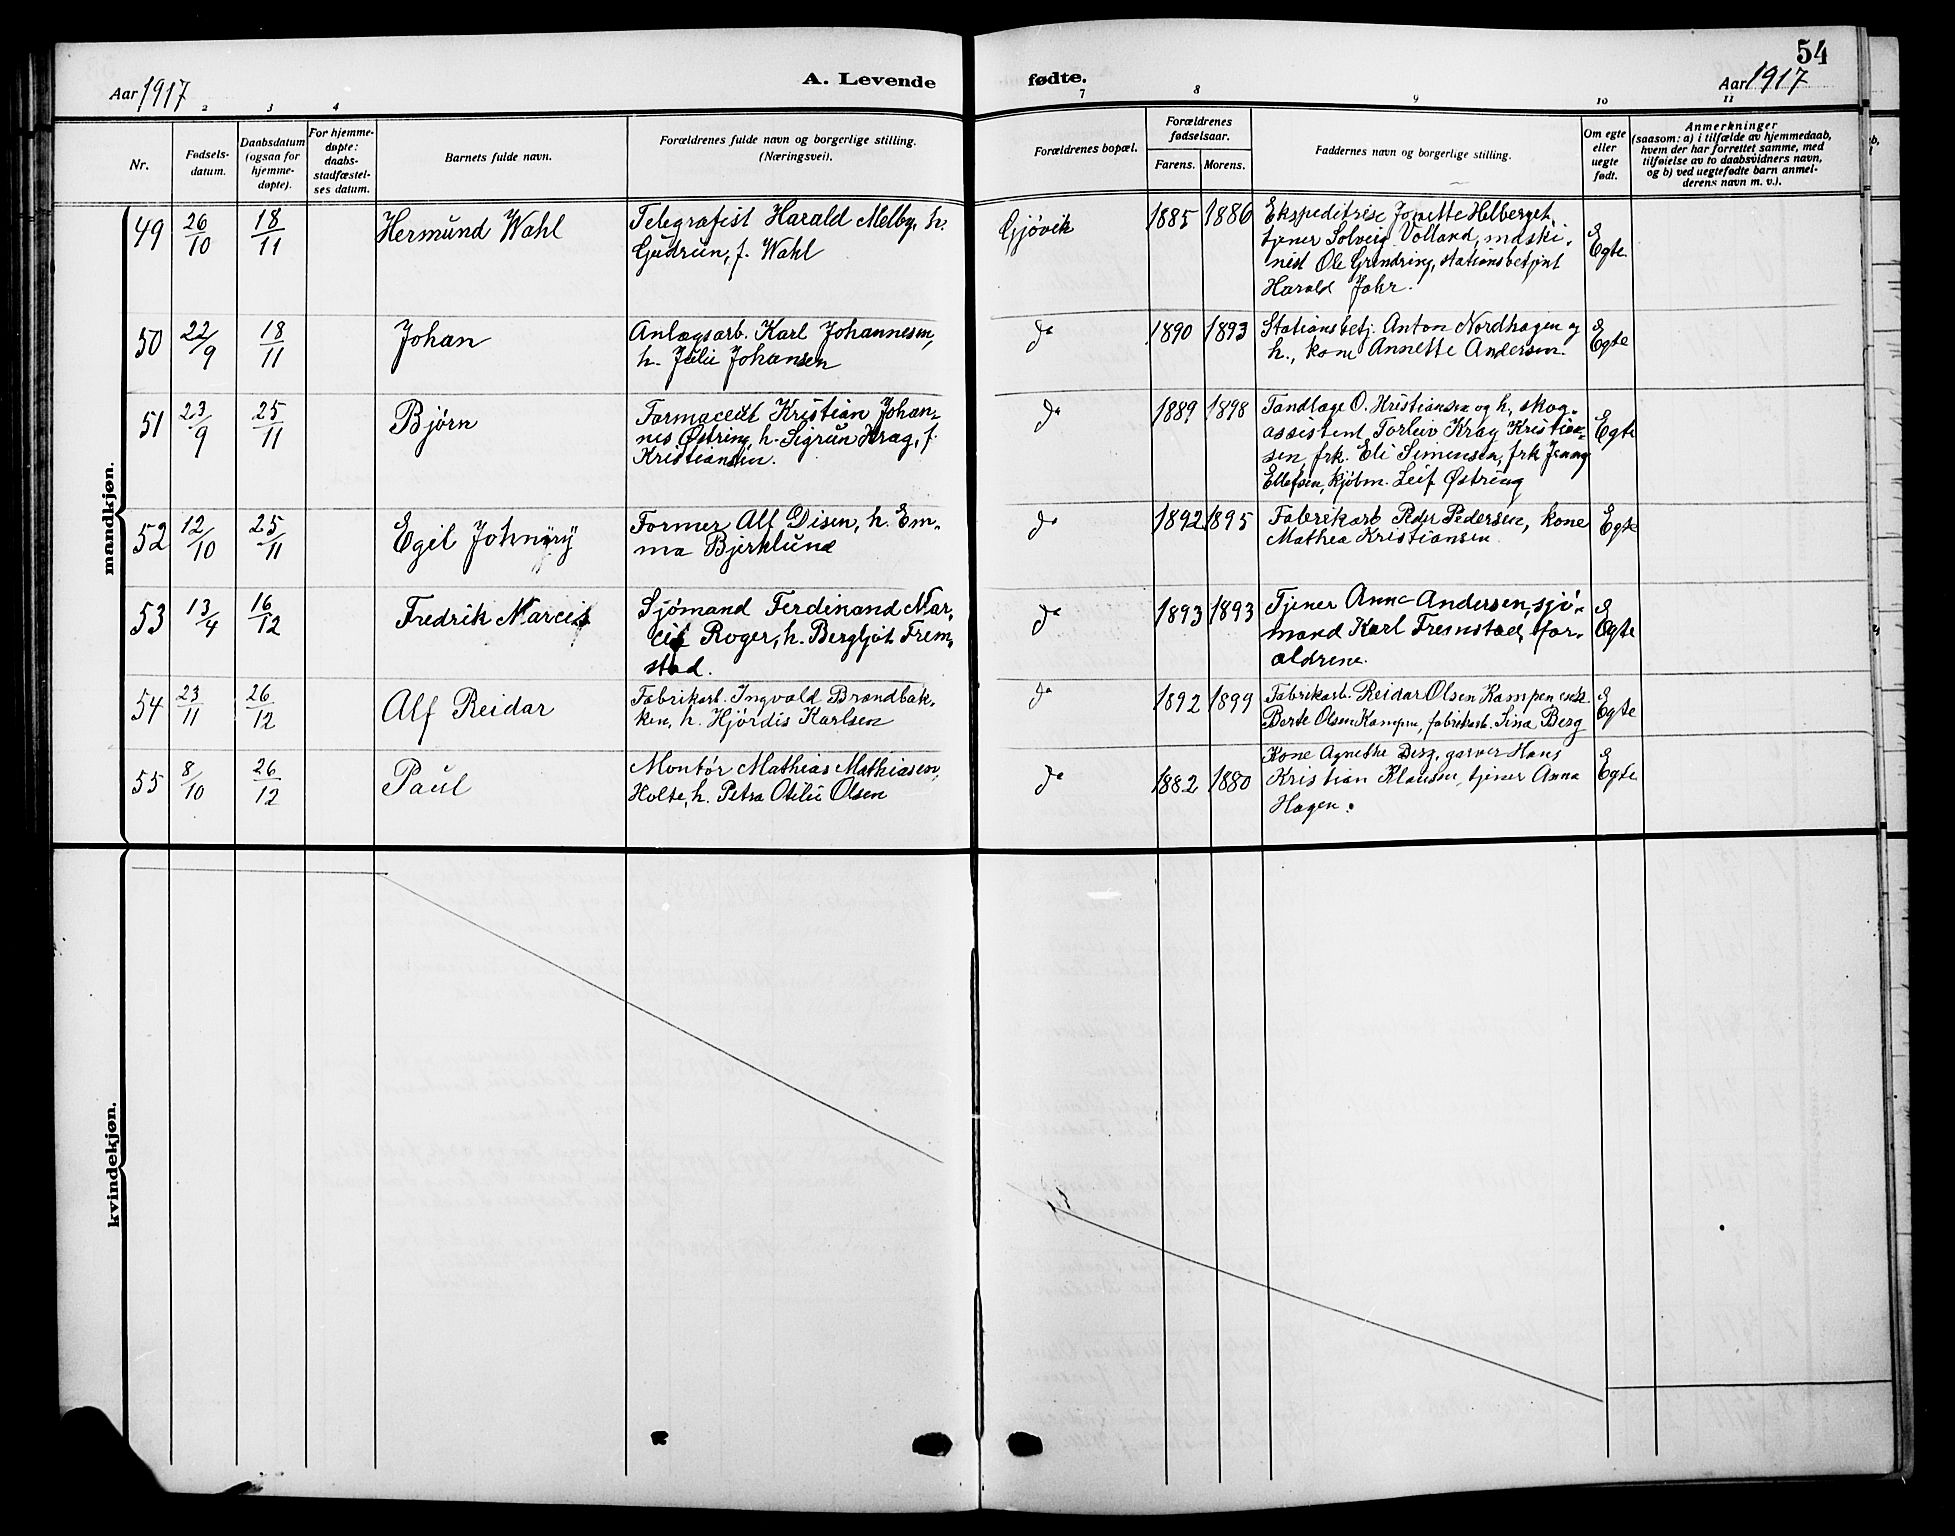 54
Aar 1917
A. Levende
fødte.
Aar 1917
2 3 4 7 8 9 10 11
Nr.
Fødsels-
datum.
Daabsdatum
(ogsaa for
hjemme-
døpte).
For hjemme-
døpte:
daabs-
stadfæstel-
ses datum.
Barnets fulde navn.
Forældrenes fulde navn og borgerlige stilling.
(Næringsvei).
Forældrenes bopæl.
Forældrenes
fødselsaar.
Farens. Morens.
Faddernes navn og borgerlige stilling.
Om egte
eller
uegte
født.
Anmerkninger
(saasom: a) i tilfælde av hjemmedaab,
hvem der har forrettet samme, med
tilføielse av to daabsvidners navn,
og b) ved uegtefødte barn anmel-
derens navn m. v.).
mandkjøn.
49 26/10 18/11 Hermund Wahl
Telegrafist Harald Melby, h.
Gudrun, f. Wahl
Gjøvik 1885 1886
Ekspeditrise Jonette Helberget,
tjener Solveig Volland, maski-
nist Ole Grindring, stationsbetjent
Harald Johr.
Egte
50 22/9 18/11 Johan
Anlægsarb. Karl Johannesen,
h. Julie Johansen
do 1890 1893
Stationsbetj. Anton Nordhagen og
h., kone Annette Andersen.
Egte
51 23/9 25/11 Bjørn
Farmaceut Kristian Johan-
nes Østring, h. Sigrun Krag, f.
Kristiansen.
do 1889 1898
Tandlæge O. Kristiansen og h., skog-
assistent Torleiv Krag Kristian-
sen, frk. Eli Simensen, frk Jenny
Ellefsen, kjøbm. Leif Østring
Egte
52 12/10 25/11 Egil Johnny
Former Alf Disen, h. Em-
ma Bjerklund
do 1892 1895
Fabrikarb Peder Pedersen, kone
Mathea Kristiansen
Egte
53 13/4 16/12 Fredrik Narcis
Sjømand Ferdinand Nar-
cis Roger, h. Bergljot Frem-
stad.
do 1893 1893
Tjener Anna Andersen, sjø-
mand Karl Fremstad, for-
ældrene.
Egte
54 23/11 26/12 Alf Reidar
Fabrikarb. Ingvald Brændbak-
ken, h. Hjørdis Karlsen
do 1892 1899
Fabrikarb. Reidar Olsen Kampen
Berte Olsen Kampen, fabrikarb. Sina Berg
Egte
55 8/10 26/12 Paul
Montør Mathias Mathiasen
Holte, h. Petra Otilie Olsen
do 1882 1880
Kone Agnethe Berg, garver Hans
Kristian Klausen, tjener Anna
Hagen.
Egte
kvindekjøn.